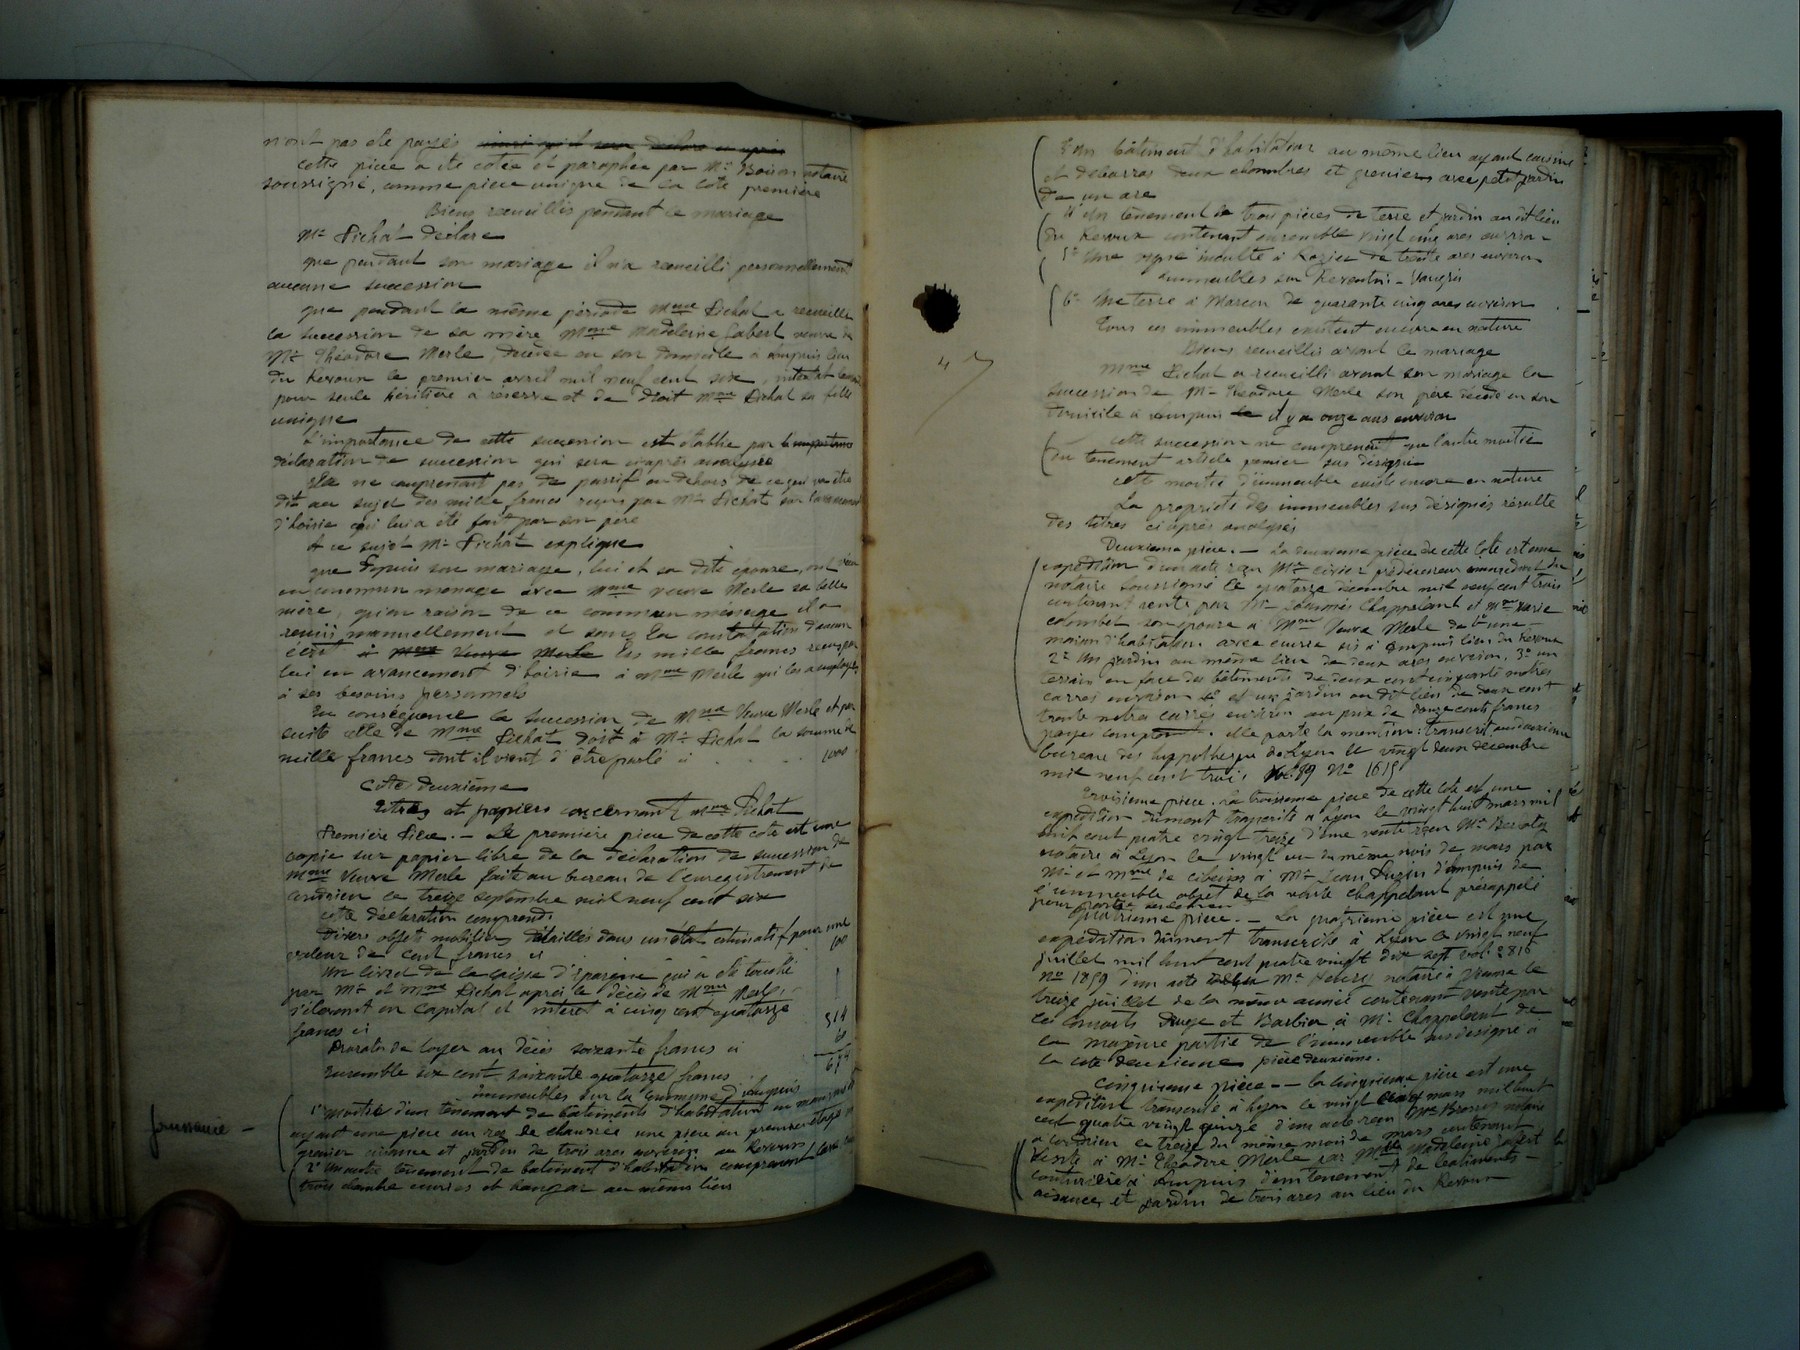 n'ont pas été payés ainsi qu'il sera déclaré ci après
Cette pièce a été cotée et paraphée par Me Boiron notaire
soussigné, comme pièce unique de la cote première
Biens recueillis pendant le mariage
Mr Pichat déclare
que pendant son mariage il n'a recueilli personnellement
aucune succession
que pendant la même période Mme Pichat a recueilli
la succession de sa mère Mme Madeleine Jabert veuve de
Mr Théodore Merle, décédée en son domicile à Ampuis lieu
du Revoux le premier avril mil neuf cent six, intestat
pour seule héritière à réserve et de droit Mme Pichat sa fille
unique
L'importance de cette succession est établie par
déclaration de succession qui sera ci après analysée
Elle ne comprenait pas de passif en dehors de ce qui va être
dit au sujet des mille francs reçus par Mr Pichat sur l'avancement
d'hoirie qui lui a été fait par son père
A ce sujet Mr Pichat explique
que depuis son mariage, lui et sa dite épouse, ont vécu
en commun ménage avec Mme veuve Merle sa belle
mère, qu'en raison de ce commun ménage il a
remis manuellement et sans la constatation d'aucun
écrit à Mme Veuve Merle les mille francs reçus par
lui en avancement d'hoirie à Mme Merle qui les a employés
à ses besoins personnels
En conséquence la succession de Mme Veuve Merle et par
suite celle de Mme Pichat doit à Mr Pichat la somme de
mille francs dont il vient d'être parlé ci . . . . 1000
Cote deuxième
Titres et papiers concernant Mme Pichat
Première Pièce. — La première pièce de cette cote est une
copie sur papier libre de la déclaration de succession de
Mme Veuve Merle faite au bureau de l'enregistrement de
Condrieu le treize septembre mil neuf cent six
cette déclaration comprend:
Divers objets mobiliers détaillés dans un état estimatif pour une
valeur de cent francs ci 100
Un livret de la caisse d'épargne qui a été touché
par Mr et Mme Pichat après le décès de Mme Merle
s'élevant en capital et intérêt à cinq cent quatorze
francs ci 514
Prorata de loyer au décès soixante francs ci 60
Ensemble six cent soixante quatorze francs 674
immeubles sur la commune d'Ampuis
1° moitié d'un tènement de bâtiments d'habitation
ayant une pièce au rez de chaussée une pièce au premier étage
grenier et jardin de trois ares environ au Revoux
2° Un autre tènement de bâtiment d'habitation comprenant
trois chambre écuries et hangar au même lieu
jouissance —
3° Un bâtiment d'habitation au même lieu ayant cuisine
et débarras deux chambres et greniers avec petit jardin
de un are
4° Un tènement de trois pièces de terre et jardin au dit lieu
du Revoux contenant ensemble vingt cinq ares environ
5° Une vigne inculte à Rozier de trente ares environ
immeubles sur Reventin-Vaugris
6° Une terre à Marcon de quarante cinq ares environ
Tous ces immeubles existent encore en nature
Biens recueillis avant le mariage
Mme Pichat a recueilli avant son mariage la
succession de Mr Théodore Merle son père décédé en son
domicile à Ampuis le il y a onze ans environ
Cette succession ne comprenait que l'autre moitié
du tènement article premier sus désigné
Cette moitié d'immeuble existe encore en nature
La propriété des immeubles sus désignés résulte
des titres ci après analysés
Deuxième pièce. — La deuxième pièce de cette cote est une
expédition d'un acte reçu Me prédécesseur immédiat du
notaire soussigné le quatorze décembre mil neuf cent trois
contenant vente par Mr Chappelant et Mme Marie
Colombet son épouse à Mme Veuve Merle de 1° une
maison d'habitation avec écurie sis à Ampuis lieu du Revoux
2° Un jardin au même lieu de deux ares environ, 3° un
terrain en face des bâtiments de deux cent cinquante mètres
carrés environ et un jardin au dit lieu de deux cent
trente mètres carrés environ au prix de douze cents francs
payé comptant. elle porte la mention: transcrit au deuxième
bureau des hypothèques de Lyon le vingt deux décembre
mil neuf cent trois vol 89 No 1615
Troisième pièce. La troisième pièce de cette cote est une
expédition dûment transcrite à Lyon le vingt huit mars mil
huit cent quatre vingt treize d'une vente reçu Me
notaire à Lyon le vingt un du même mois de mars par
Mr et Mme de à Mr Jean d'Ampuis de
l'immeuble objet de la vente Chappelant prérappelé
pour partie
Quatrième pièce. — La quatrième pièce est une
expédition dûment transcrite à Lyon le vingt neuf
juillet mil huit cent quatre vingt dix sept vol. 2816
No 1859 d'un acte Me notaire à Vienne le
treize juillet de la même année contenant vente par
les consorts et Barbier à Mr Chappelant de
la majeure partie de l'immeuble sus désigné à
la cote deuxième pièce deuxième.
Cinquième pièce — la cinquième pièce est une
expédition transcrite à Lyon le vingt mars mil huit
cent quatre vingt quinze d'un acte reçu Me notaire
à Condrieu le treize du même mois de mars contenant
Vente à Mr Théodore Merle par Madeleine Jabert
couturière à Ampuis d'un tènement de bâtiments
aisances et jardin de trois ares au lieu du Revoux